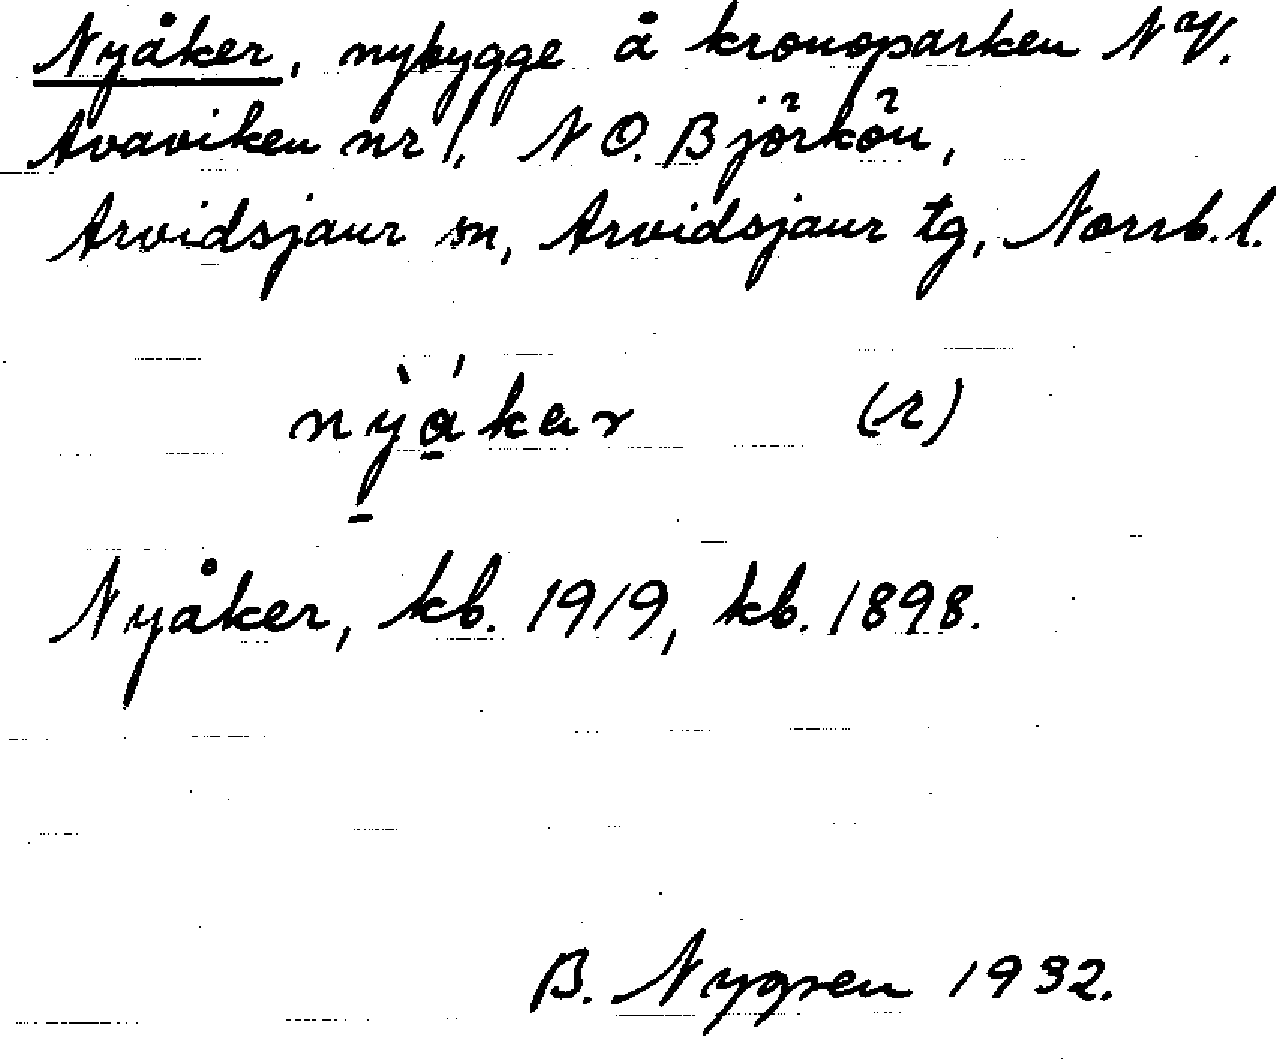 Nyåker, nybygge å kronoparken NV.
Avaviken nr 1. NO. Björkön,
Arvidsjaur sn, Arvidsjaur tg, Norrb. l.
nỳ̠á̠kər (r)
Nyåker, kb. 1919, kb. 1898.
B. Nygren 1932.